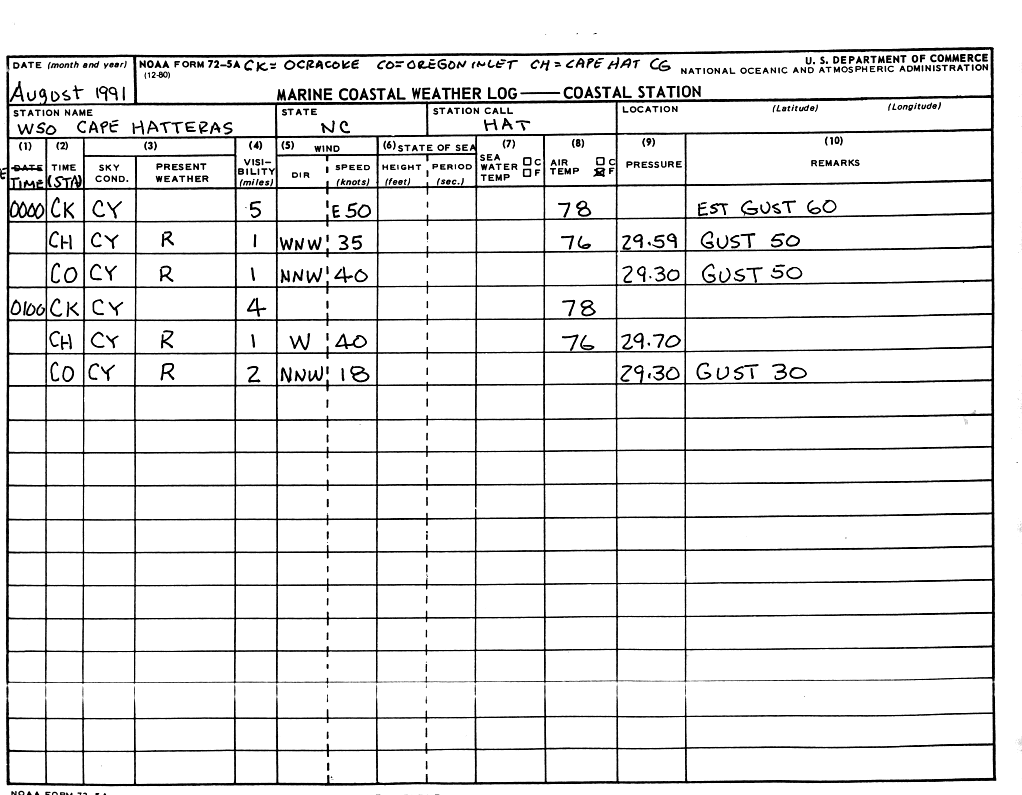 DATE (month and year) NOAA FORM 72-5A CK= OCRACOKE CO=OREGON INLET CH = CAPE HAT CG U. S. DEPARTMENT OF COMMERCE
(12-80) NATIONAL OCEANIC AND ATMOSPHERIC ADMINISTRATION
AUGUST 1991 MARINE COASTAL WEATHER LOG — COASTAL STATION
STATION NAME STATE STATION CALL LOCATION (Latitude) (Longitude)
WSO CAPE HATTERAS NC HAT
(1) (2) (3) (4) (5) WIND (6) STATE OF SEA (7) (8) (9) (10)
DATE TIME SKY COND. PRESENT WEATHER VISI-BILITY (miles) DIR SPEED (knots) HEIGHT (feet) PERIOD (sec.) SEA WATER TEMP C F AIR TEMP C F PRESSURE REMARKS
TIME (STA)
0000 CK CY 5 E50 78 EST GUST 60
CH CY R 1 WNW 35 76 29.59 GUST 50
CO CY R 1 NNW 40 29.30 GUST 50
0100 CK CY 4 78
CH CY R 1 W 40 76 29.70
CO CY R 2 NNW 18 29.30 GUST 30
NOAA FORM 72-5A